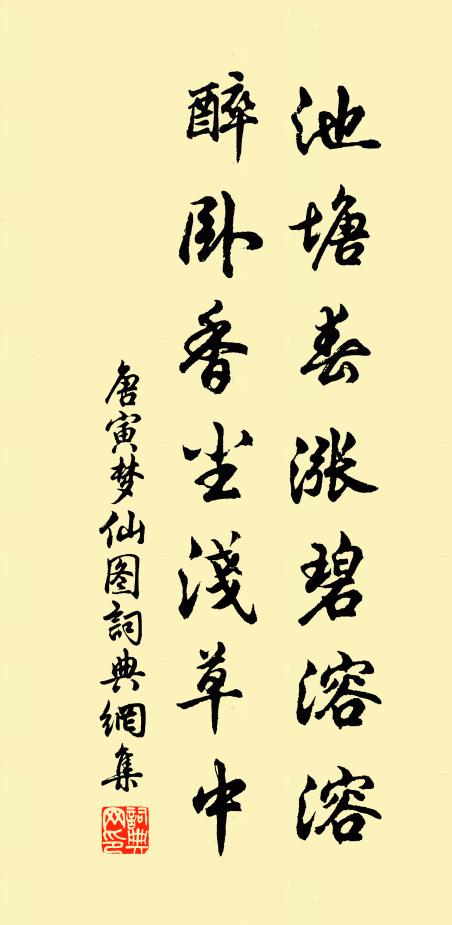 池塘春漲碧溶溶
醉卧香尘淺草中
唐寅梦仙图詞典網集
詞典网印